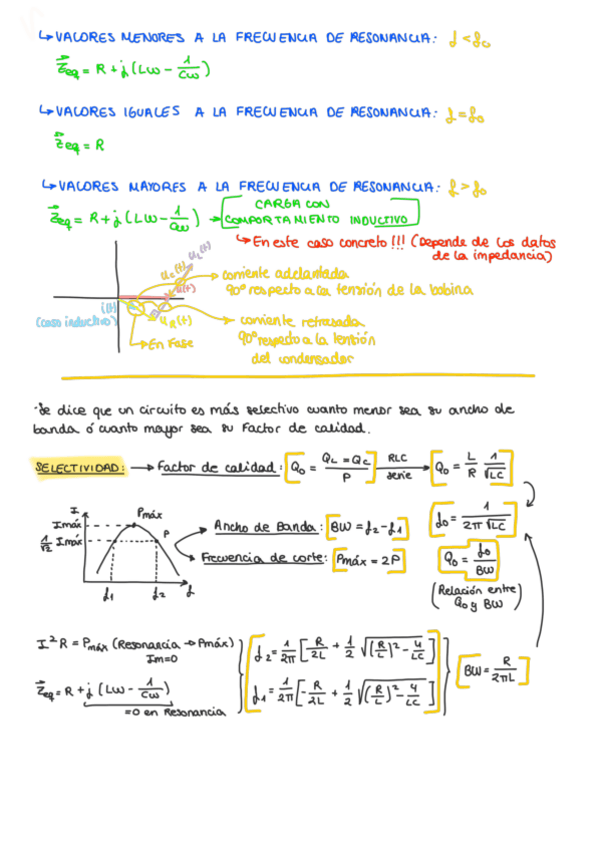 ↳VALORES MENORES A LA FRECUENCIA DE RESONANCIA: f < f₀
Z̄eq = R + j (Lω - 1/Cω)
↳VALORES IGUALES A LA FRECUENCIA DE RESONANCIA: f = f₀
Z̄eq = R
↳VALORES MAYORES A LA FRECUENCIA DE RESONANCIA: f > f₀
Z̄eq = R + j (Lω - 1/Cω) → [CARGA CON
COMPORTAMIENTO INDUCTIVO]
↳En este caso concreto!!! (Depende de los datos
de la impedancia)
u_L(t)
u_C(t)
u(t)
→ corriente adelantada
90º respecto a la tensión de la bobina
i(t)
(caso inductivo)
u_R(t)
→ corriente retrasada
90º respecto a la tensión
del condensador
↳En Fase
·Se dice que un circuito es más selectivo cuanto menor sea su ancho de
banda ó cuanto mayor sea su Factor de calidad.
SELECTIVIDAD: → Factor de calidad: [Q₀ = (Q_L = Q_C)/P] RLC serie → [Q₀ = L/R 1/√LC]
I
Imáx
1/√2 Imáx
Pmáx
P
f₁ f₂ f
Ancho de Banda: [BW = f₂ - f₁]
Frecuencia de corte: [Pmáx = 2P]
[f₀ = 1/(2π√LC)]
[Q₀ = f₀/BW]
(Relación entre
Q₀ y BW)
I²R = Pmáx (Resonancia → Pmáx)
Im=0
Z̄eq = R + j (Lω - 1/Cω)
=0 en Resonancia
[f₂ = 1/2π [R/2L + 1/2 √((R/L)² - 4/LC)]
f₁ = 1/2π [-R/2L + 1/2 √((R/L)² - 4/LC)]]
[BW = R/2πL]